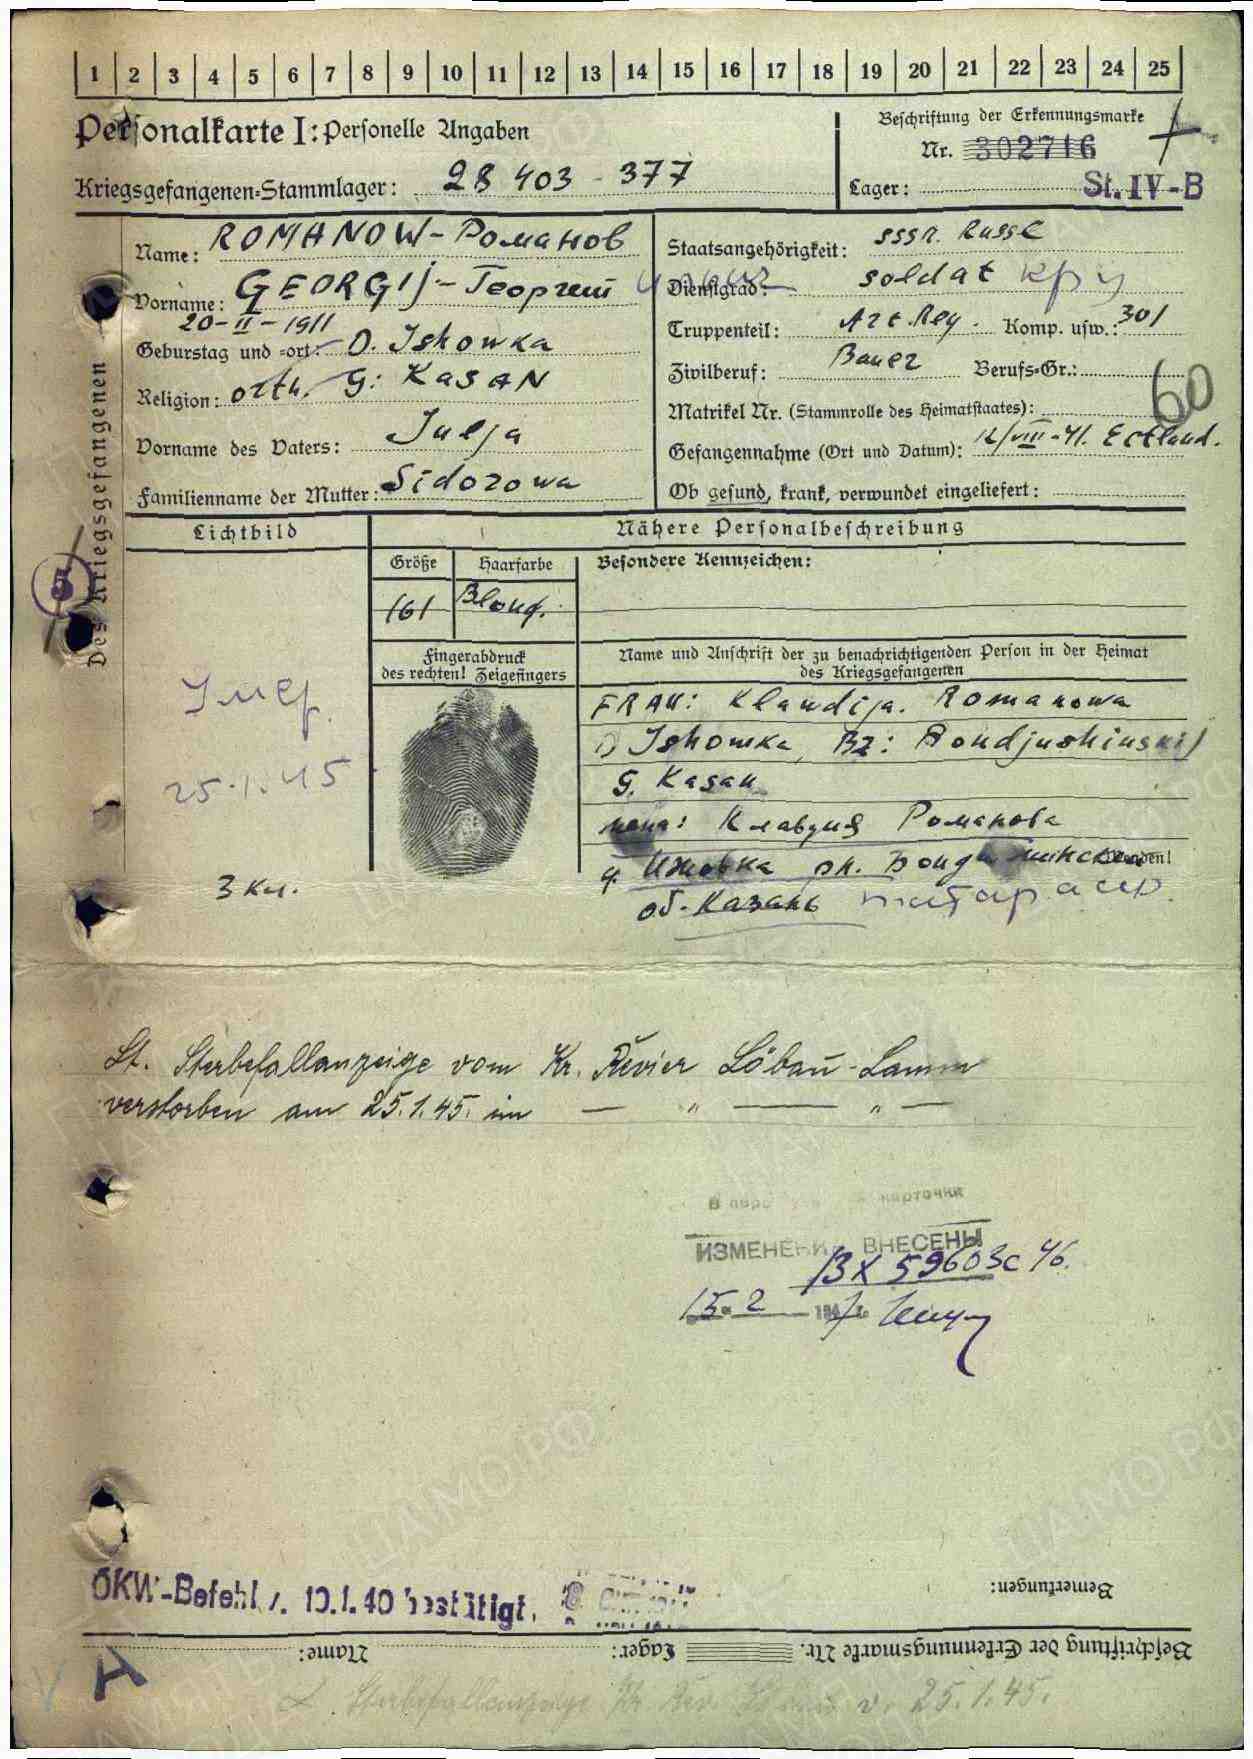 1 2 3 4 5 6 7 8 9 10 11 12 13 14 15 16 17 18 19 20 21 22 23 24 25
Personalkarte I: Personelle Angaben
Kriegsgefangenen=Stammlager: 28 403 - 377
Beschriftung der Erkennungsmarke
Nr. 302716
Lager: St. IV-B
Des Kriegsgefangenen
5
Name: ROMANOW - Романов
Vorname: GEORGIJ - Георгий
20-II-1911
Geburstag und =ort: D. Ishowka
Religion: orth. G: KASAN
Vorname des Vaters: Julja
Familienname der Mutter: Sidorowa
Staatsangehörigkeit:
Dienstgrad: soldat
Truppenteil: Art. Reg. Komp. usw.: 301
Zivilberuf: Bauer Berufs=Gr.:
60
Matrikel Nr. (Stammrolle des Heimatstaates):
Gefangennahme (Ort und Datum): 12/VIII-41. Estland.
Ob gesund, krank, verwundet eingeliefert:
Lichtbild
Умер.
25.1.45
3 Кл.
Nähere Personalbeschreibung
Größe Haarfarbe Besondere Kennzeichen:
161 Blond.
Fingerabdruck
des rechten! Zeigefingers
Name und Anschrift der zu benachrichtigenden Person in der Heimat
des Kriegsgefangenen
FRAU: Klawdija. Romanowa
D Ishowka, BZ: Bondjushinskij
G. Kasan
жена: Клавдия Романова
д. Ижовка рн. Бондюжинский
об. Казань татар асср.
Lt. Sterbefallanzeige vom Kr. Revier Löbau-Lamm
verstorben am 25.1.45. im — " — " —
карточки
ИЗМЕНЕНИЯ ВНЕСЕНЫ
ВХ 59603с 46.
15. 2 194
OKW-Befehl v. 10.1.40 bestätigt.
Bemerkungen:
Beschriftung der Erkennungsmarke Nr. Lager: Name:
Sterbefallanzeige Kr. Rev. v. 25.1.45.
ЦАМО.РФ
ЦАМО.РФ